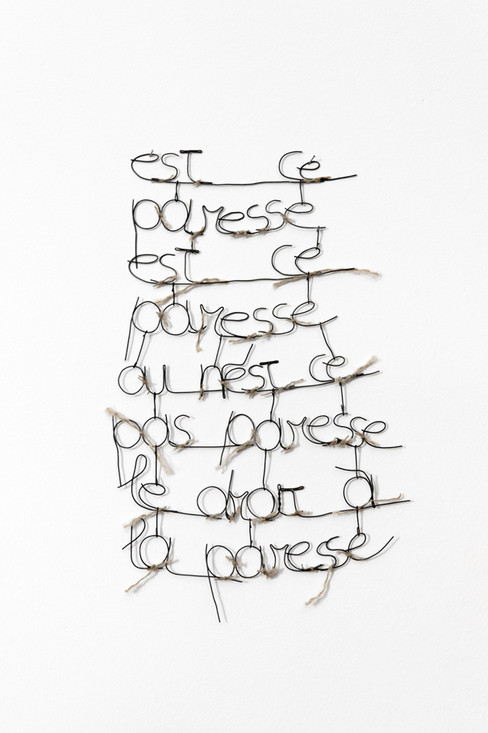 est ce
paresse
est ce
paresse
ou n'est ce
pas paresse
le droit à
la paresse